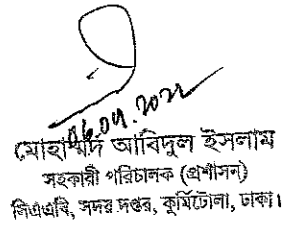 06.04.2022
মোহাম্মদ আবিদুল ইসলাম
সহকারী পরিচালক (প্রশাসন)
সিএএবি, সদর দপ্তর, কুর্মিটোলা, ঢাকা।